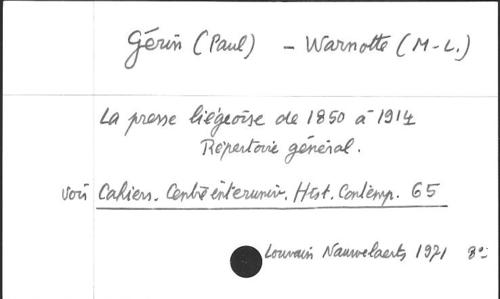 Gérin (Paul) - Warnotte (M-L.)
La presse liégeoise de 1850 à 1914
Répertoire général.
voir Cahiers. Centre interuniv. Hist. Contemp. 65
Louvain Nauwelaerts 1971 8°